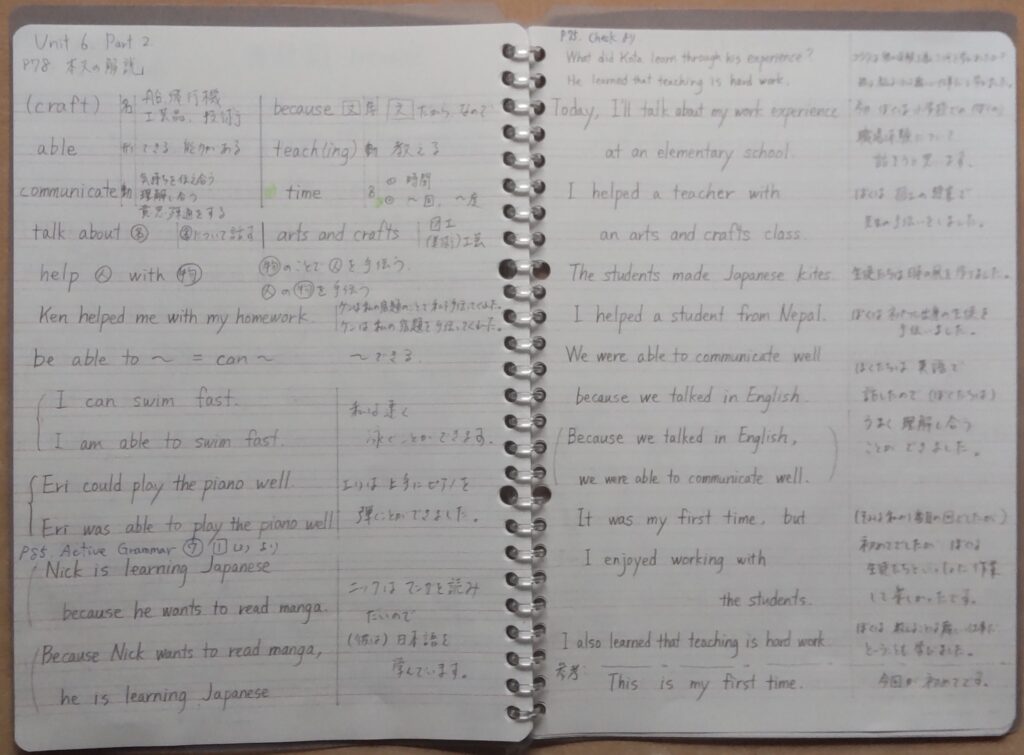 Unit 6. Part 2
P78 本文の解説」
(craft) 名 船、飛行機
工芸品、技術
able 形 できる 能力がある
communicate 動 気持ちを伝え合う
理解し合う
意思疎通をする
talk about 名 名について話す
help 人 with 物 物のことで人を手伝う
人の物を手伝う
Ken helped me with my homework. ケンは私の宿題のことで私を手伝ってくれた。
ケンは私の宿題を手伝ってくれた。
be able to ~ = can ~ ~できる
I can swim fast. 私は速く
I am able to swim fast. 泳ぐことができます。
Eri could play the piano well. エリは上手にピアノを
Eri was able to play the piano well 弾くことができました。
because 文 文 だから なので
teach(ing) 動 教える
time 名 ① 時間
② ~回、~度
arts and crafts 図工
(美術)工芸
P85 Active Grammar ⑦ 1 (2) より
Nick is learning Japanese ニックは マンガを読み
because he wants to read manga. たいので
Because Nick wants to read manga, (彼は) 日本語を
he is learning Japanese 学んでいます。
P85. Check より
What did Kota learn through his experience?
He learned that teaching is hard work.
Today, I'll talk about my work experience
at an elementary school. 職場体験について
話そうと思います。
I helped a teacher with ぼくは 図工の授業で
an arts and crafts class. 先生の手伝いをしました。
The students made Japanese kites. 生徒たちは日本の凧を作りました。
I helped a student from Nepal. ぼくはネパール出身の生徒を
手伝いました。
We were able to communicate well ぼくたちは 英語で
because we talked in English. 話したので (ぼくたちは)
うまく理解し合う
(Because we talked in English, ことが できました。
we were able to communicate well.)
It was my first time, but
I enjoyed working with 初めてでしたが ぼくは
the students. 生徒たちといっしょに作業
して楽しかったです。
I also learned that teaching is hard work.
ということも学びました。
参考: This is my first time. 今回が初めてです。